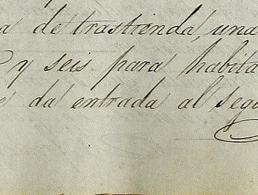 de trastienda, una
y seis para habita
da entrada al segu